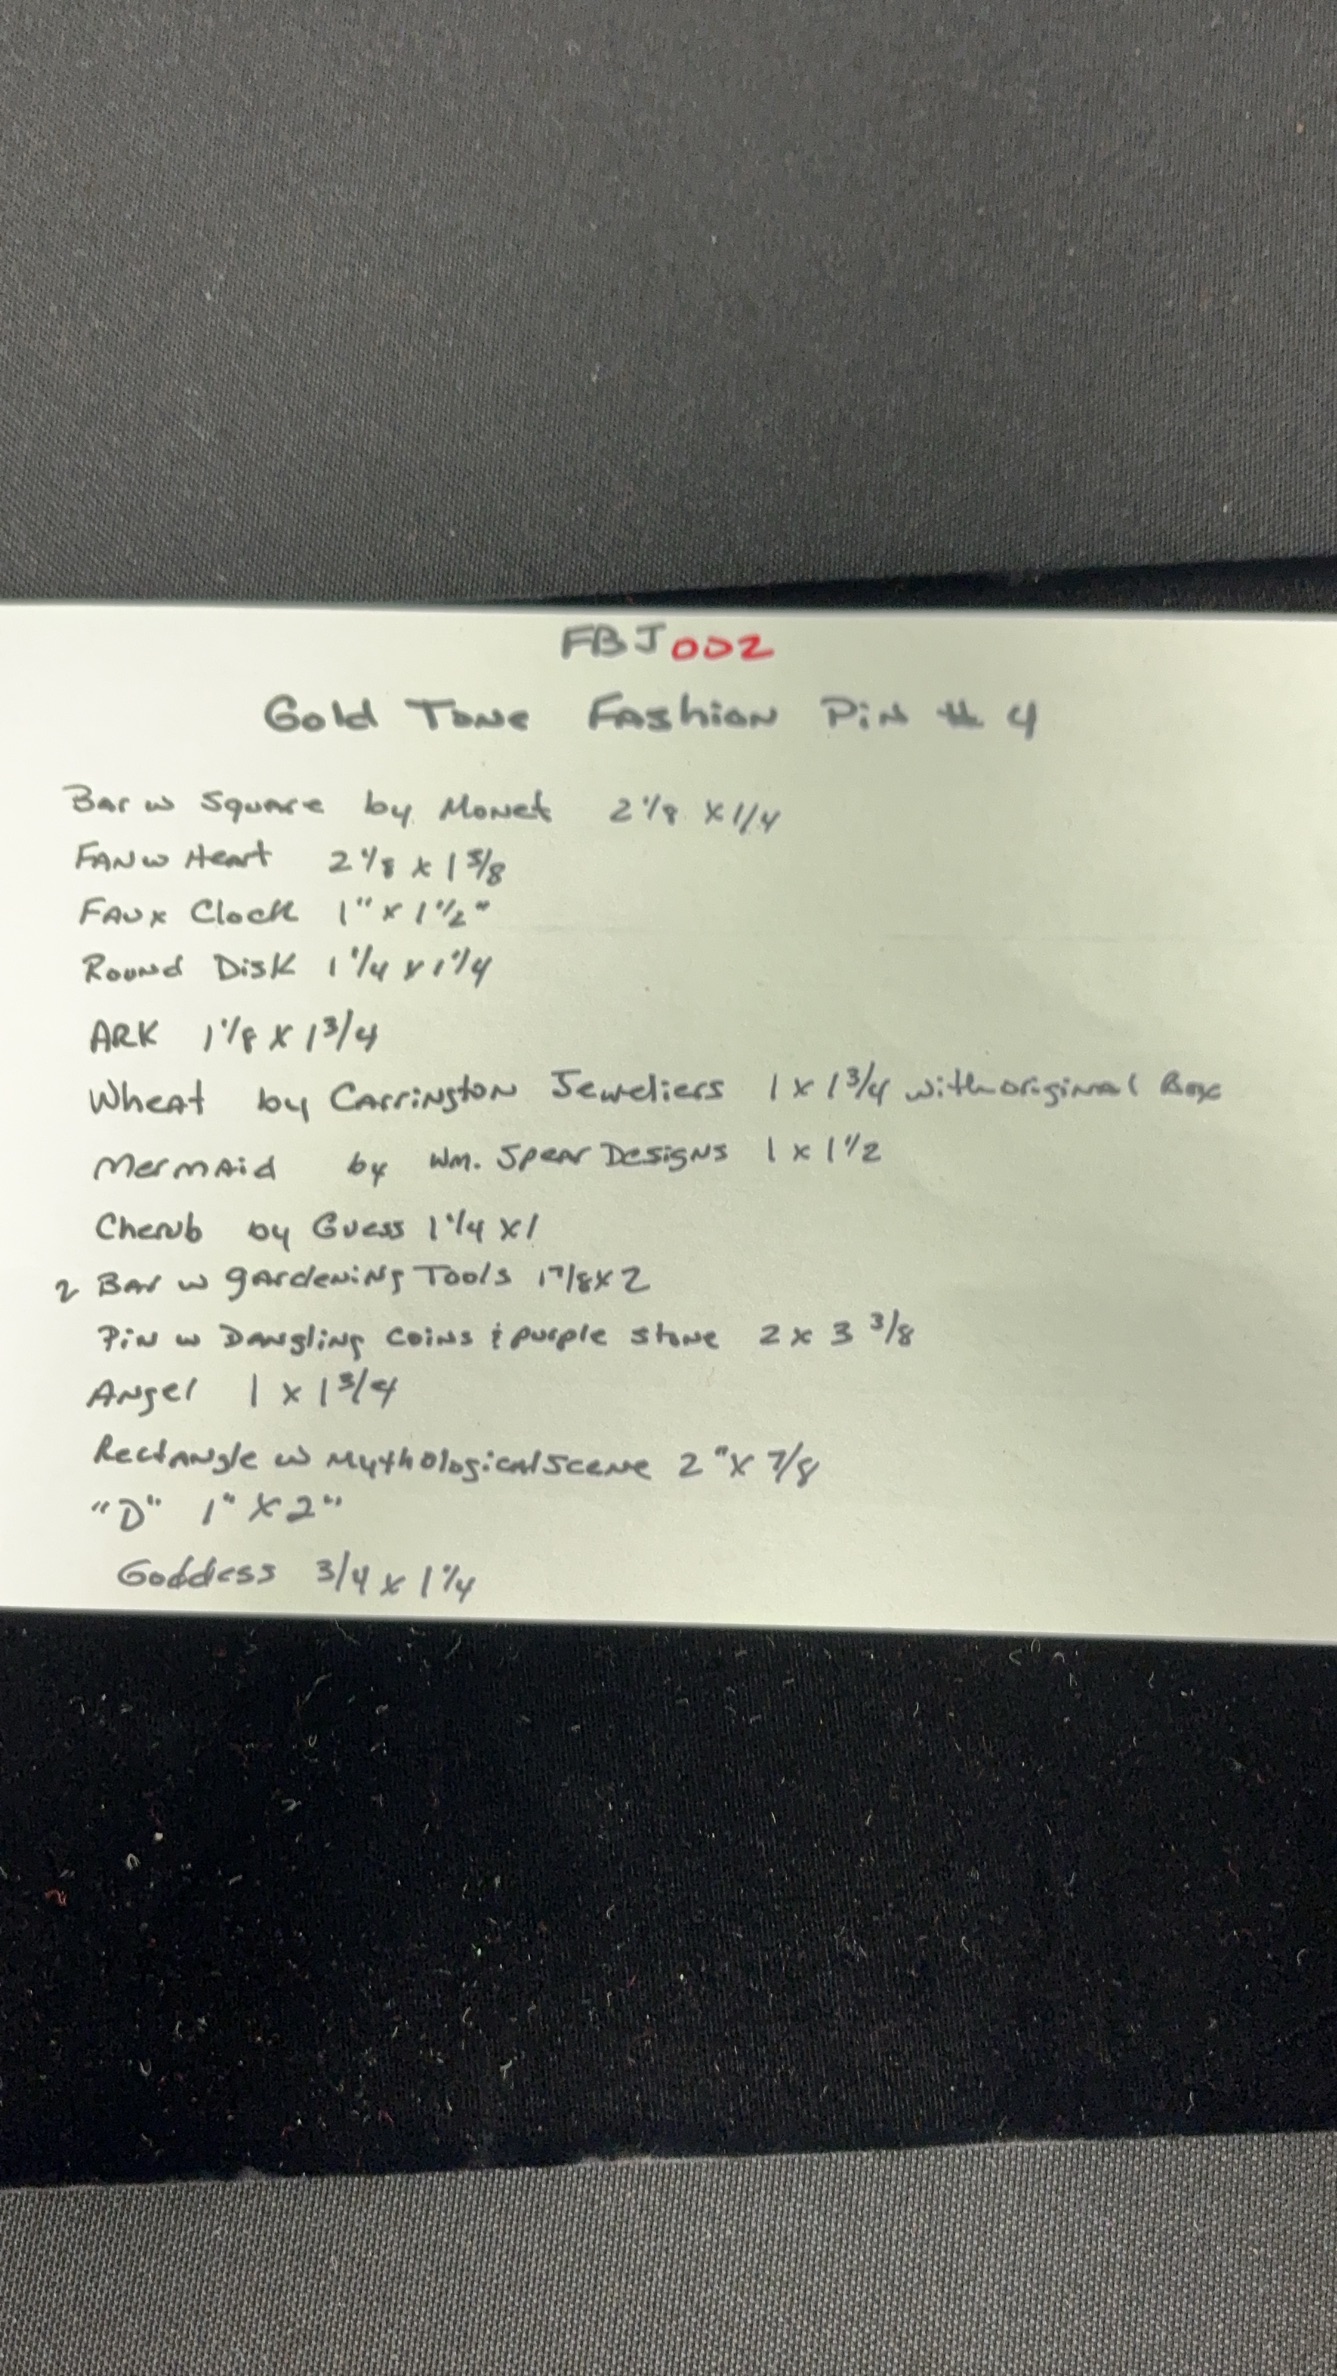 FBJ002
Gold Tone Fashion Pin # 4
Bar w Square by Monet 2 1/8 x 1/4
FAN w Heart 2 1/8 x 1 5/8
FAux Clock 1" x 1 1/2"
Round Disk 1 1/4 x 1 1/4
ARK 1 1/8 x 1 3/4
Wheat by Carrington Jeweliers 1 x 1 3/4 with original Box
Mermaid by Wm. Spear Designs 1 x 1 1/2
Cherub by Guess 1 1/4 x 1
2 Bar w gardening Tools 1 7/8 x 2
Pin w Dangling coins & purple stone 2 x 3 3/8
Angel 1 x 1 3/4
Rectangle w Mythological Scene 2" x 7/8
"D" 1" x 2"
Goddess 3/4 x 1 1/4